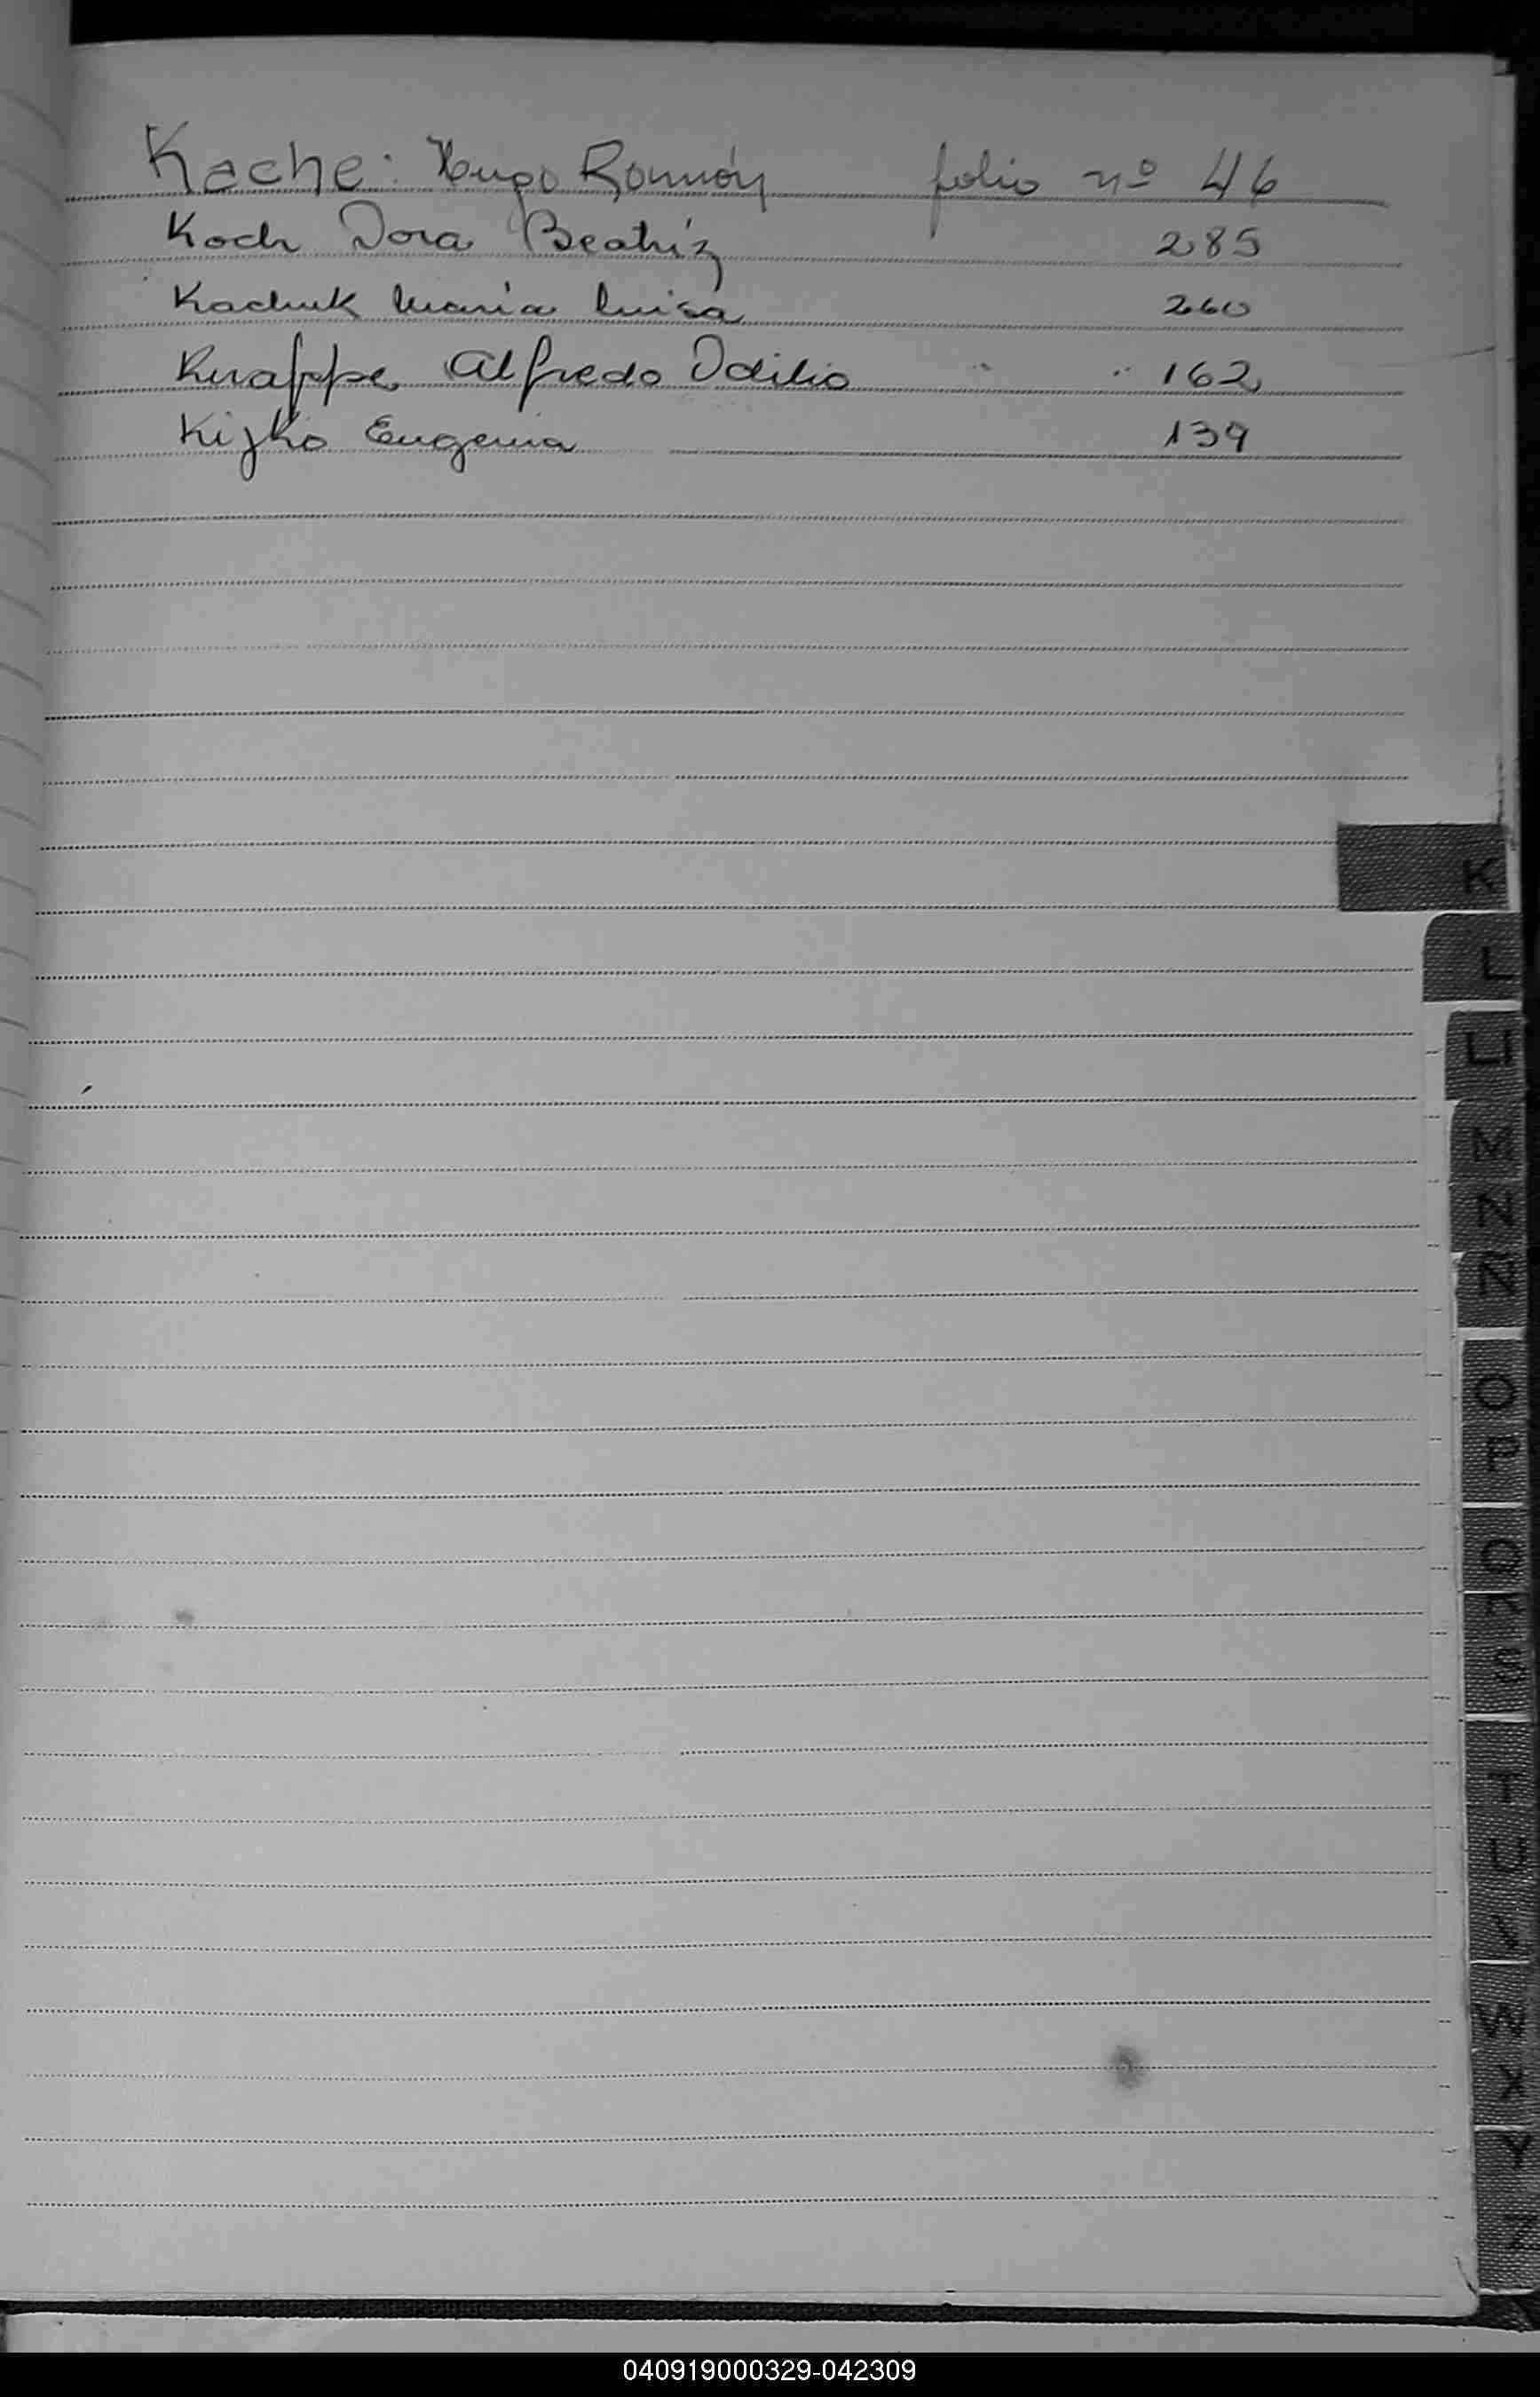 Kache: Hugo Ramón folio nº 46
Koch Dora Beatriz 285
Kachuk Maria Luisa 260
Knappe Alfredo Odilio 162
Kizko Eugenia 139
K
L
Ll
M
N
Ñ
O
P
Q
R
S
T
U
V
W
X
Y
Z
040919000329-042309